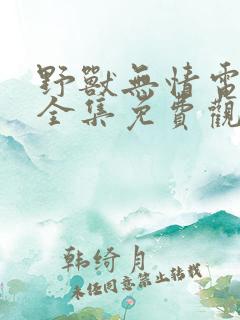 野獸無情電
全集免費觀
韩绮月
未经同意禁止转载